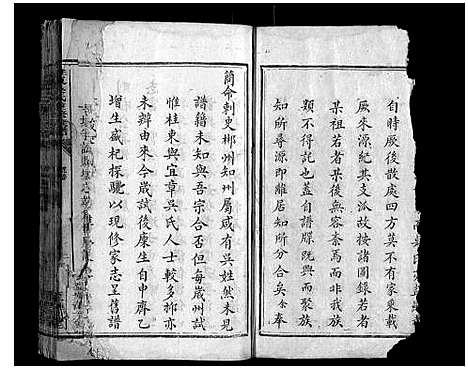 自時厥後散處四方莫不有家乘載
厥來源紀其支派故按諸圖錄若者
果祖若者果後無容紊焉而非我族
類不得託也蓋自譜牒既興而聚族
知所尋源即離居知所分合矣余奉
簡命刺史郴州知州屬咸有吳姓然未見
譜籍未知與吾宗合否但每歲州試
惟桂東與宜章吳氏人士較多郴亦
未辨由來今歲試後康生自申齊乙
增生盛杞探驪以現修家志呈舊譜